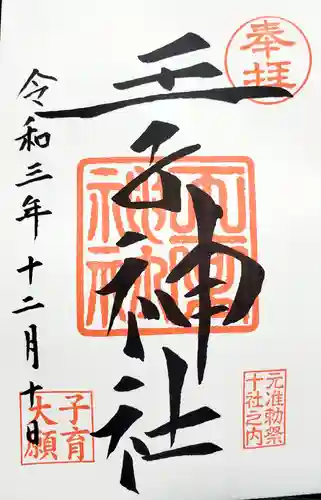 奉拝
王子神社
令和三年十二月十日
元准勅祭
十社之内
子育
大願